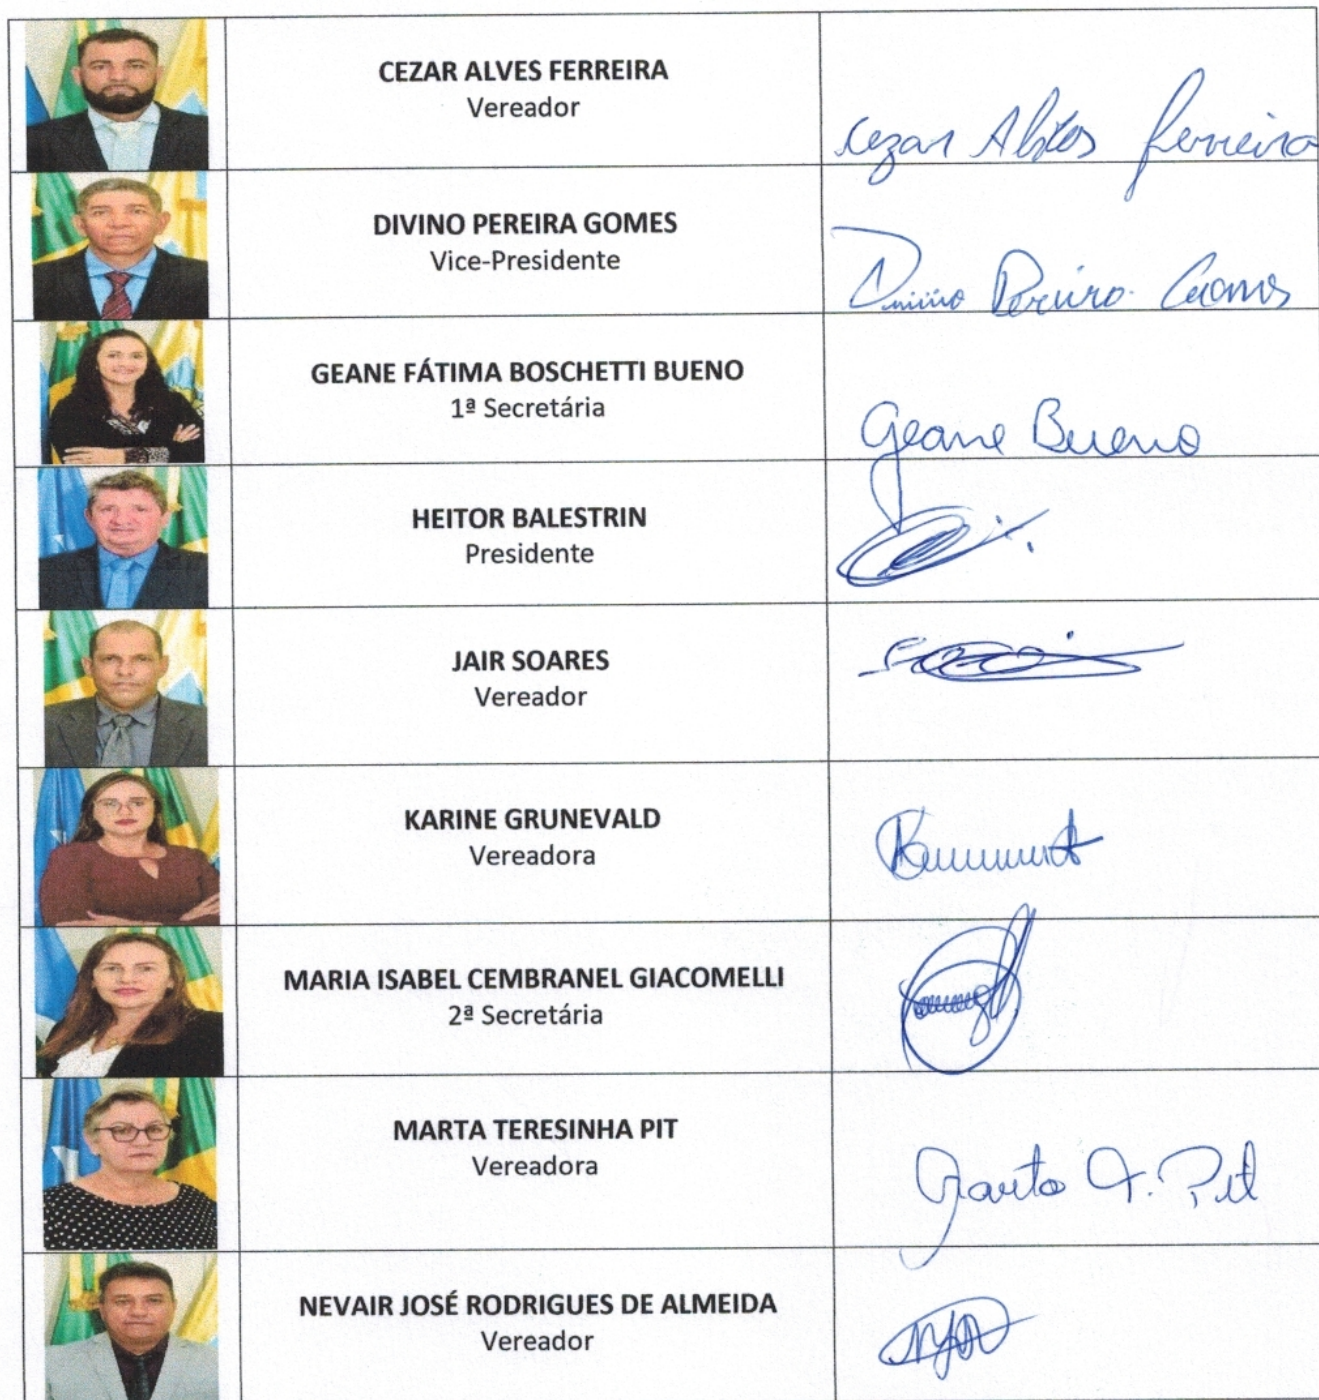 CEZAR ALVES FERREIRA
Vereador
Cezar Alves Ferreira
DIVINO PEREIRA GOMES
Vice-Presidente
Divino Pereira Gomes
GEANE FÁTIMA BOSCHETTI BUENO
1ª Secretária
Geane Bueno
HEITOR BALESTRIN
Presidente
JAIR SOARES
Vereador
KARINE GRUNEVALD
Vereadora
MARIA ISABEL CEMBRANEL GIACOMELLI
2ª Secretária
MARTA TERESINHA PIT
Vereadora
Marta T. Pit
NEVAIR JOSÉ RODRIGUES DE ALMEIDA
Vereador